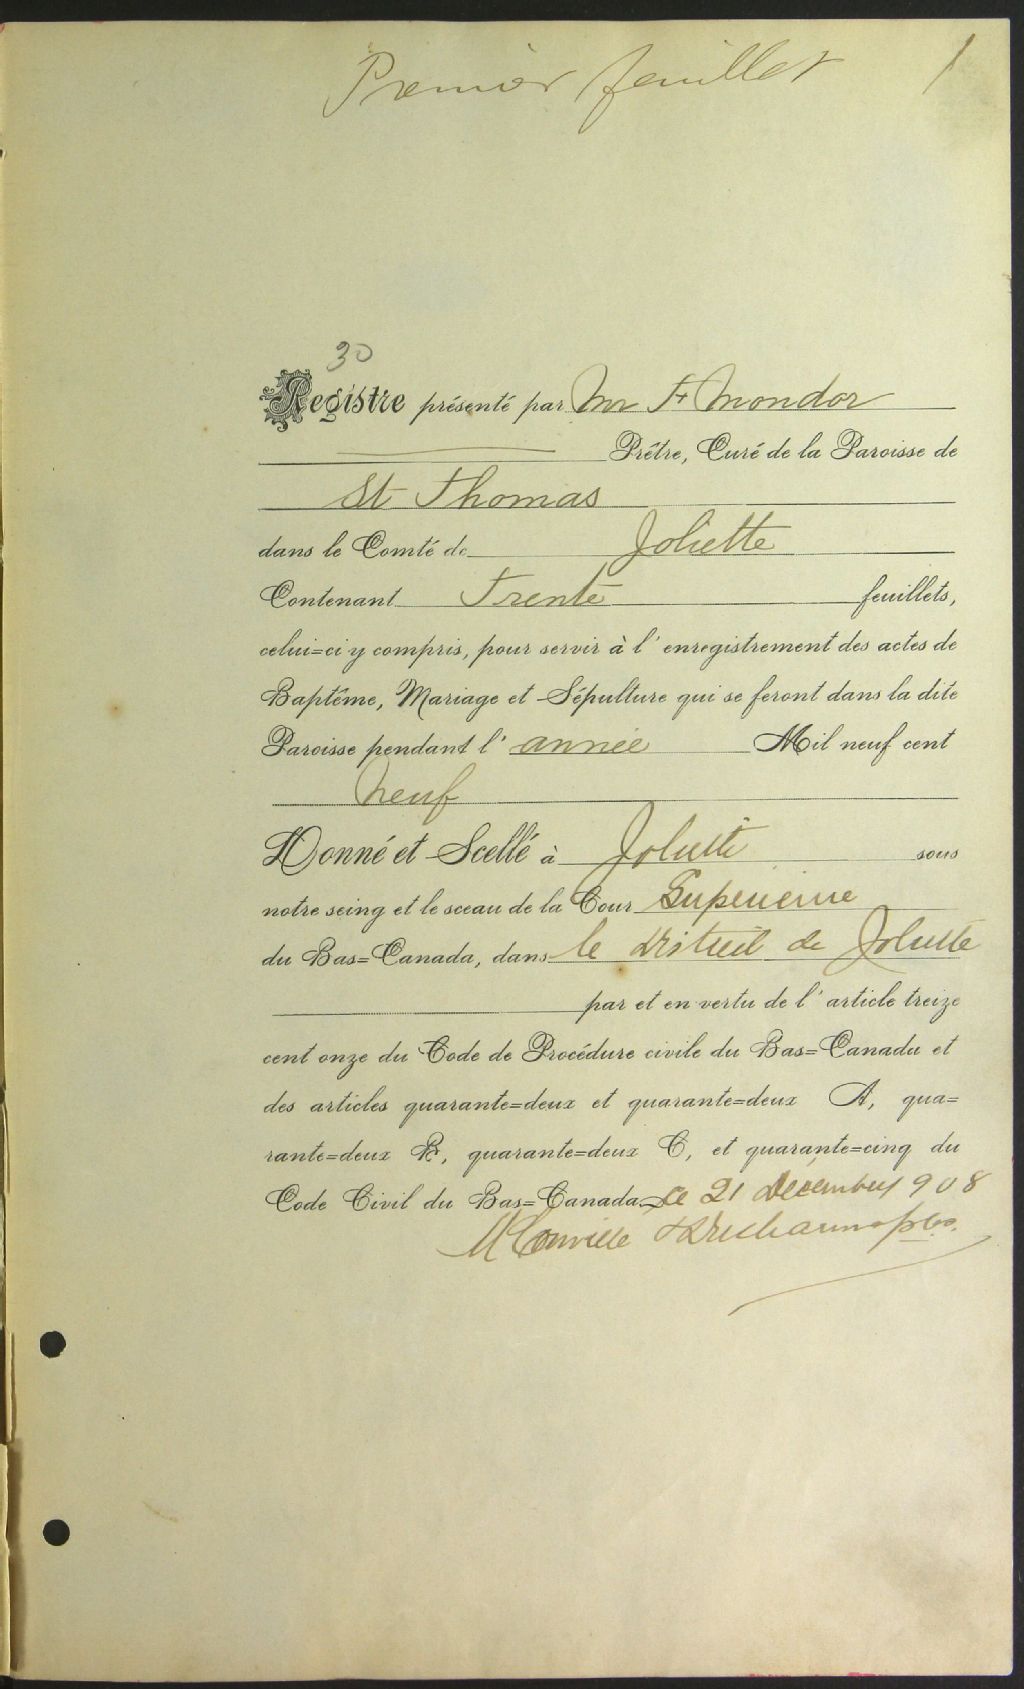 Premier feuillet 1
30
Registre présenté par Mr F Mondor
Prêtre, Curé de la Paroisse de
St Thomas
dans le Comté de Joliette
Contenant Trente feuillets,
celui=ci y compris, pour servir à l'enregistrement des actes de
Baptême, Mariage et Sépulture qui se feront dans la dite
Paroisse pendant l'année Mil neuf cent
neuf
Donné et Scellé à Joliette sous
notre seing et le sceau de la Cour Superieure
du Bas=Canada, dans le district de Joliette
par et en vertu de l'article treize
cent onze du Code de Procédure civile du Bas=Canada et
des articles quarante=deux et quarante=deux A, qua=
rante=deux B, quarante=deux C, et quarante=cinq du
Code Civil du Bas=Canada, ce 21 Décembre 1908